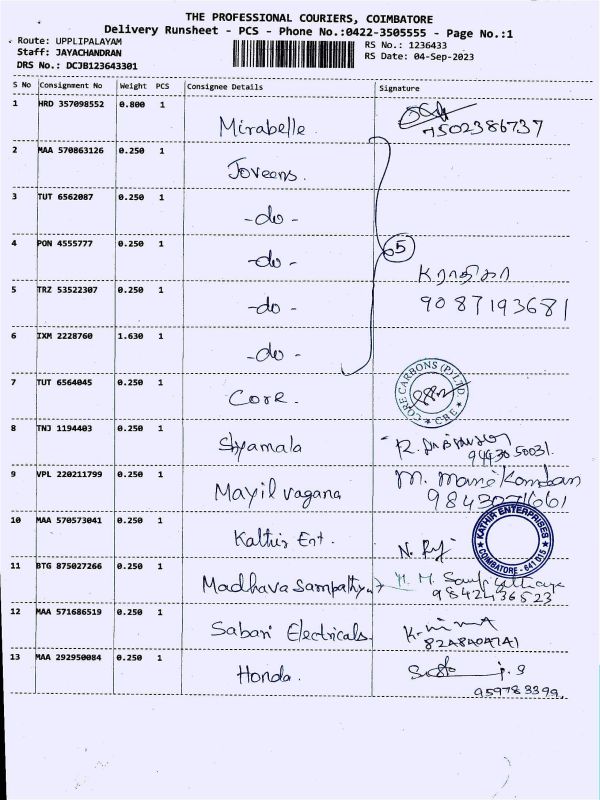 THE PROFESSIONAL COURIERS, COIMBATORE
Delivery Runsheet - PCS - Phone No.:0422-3505555 - Page No.:1
Route: UPPLIPALAYAM
RS No.: 1236433
Staff: JAYACHANDRAN
RS Date: 04-Sep-2023
DRS No.: DCJB123643301
S No Consignment No Weight PCS Consignee Details Signature
1 HRD 357098552 0.800 1
Mirabelle. 7502386737
2 MAA 570863126 0.250 1
Joveens.
3 TUT 6562087 0.250 1
-do-
4 PON 4555777 0.250 1
-do- 5
5 TRZ 53522307 0.250 1
-do- 9087193681
6 IXM 2228760 1.630 1
-do-
7 TUT 6564045 0.250 1
Core. CORE CARBONS (P) LTD. CBE
8 TNJ 1194403 0.250 1
Shyamala 9443050031.
9 VPL 220211799 0.250 1
Mayil vagana M.
10 MAA 570573041 0.250 1
Kathir Ent. KATHIR ENTERPRISES COIMBATORE - 641 015
11 BTG 875027266 0.250 1
Madhava 9842436523
12 MAA 571686519 0.250 1
Sabari Electricals
13 MAA 292950084 0.250 1
Honda.
959783399.